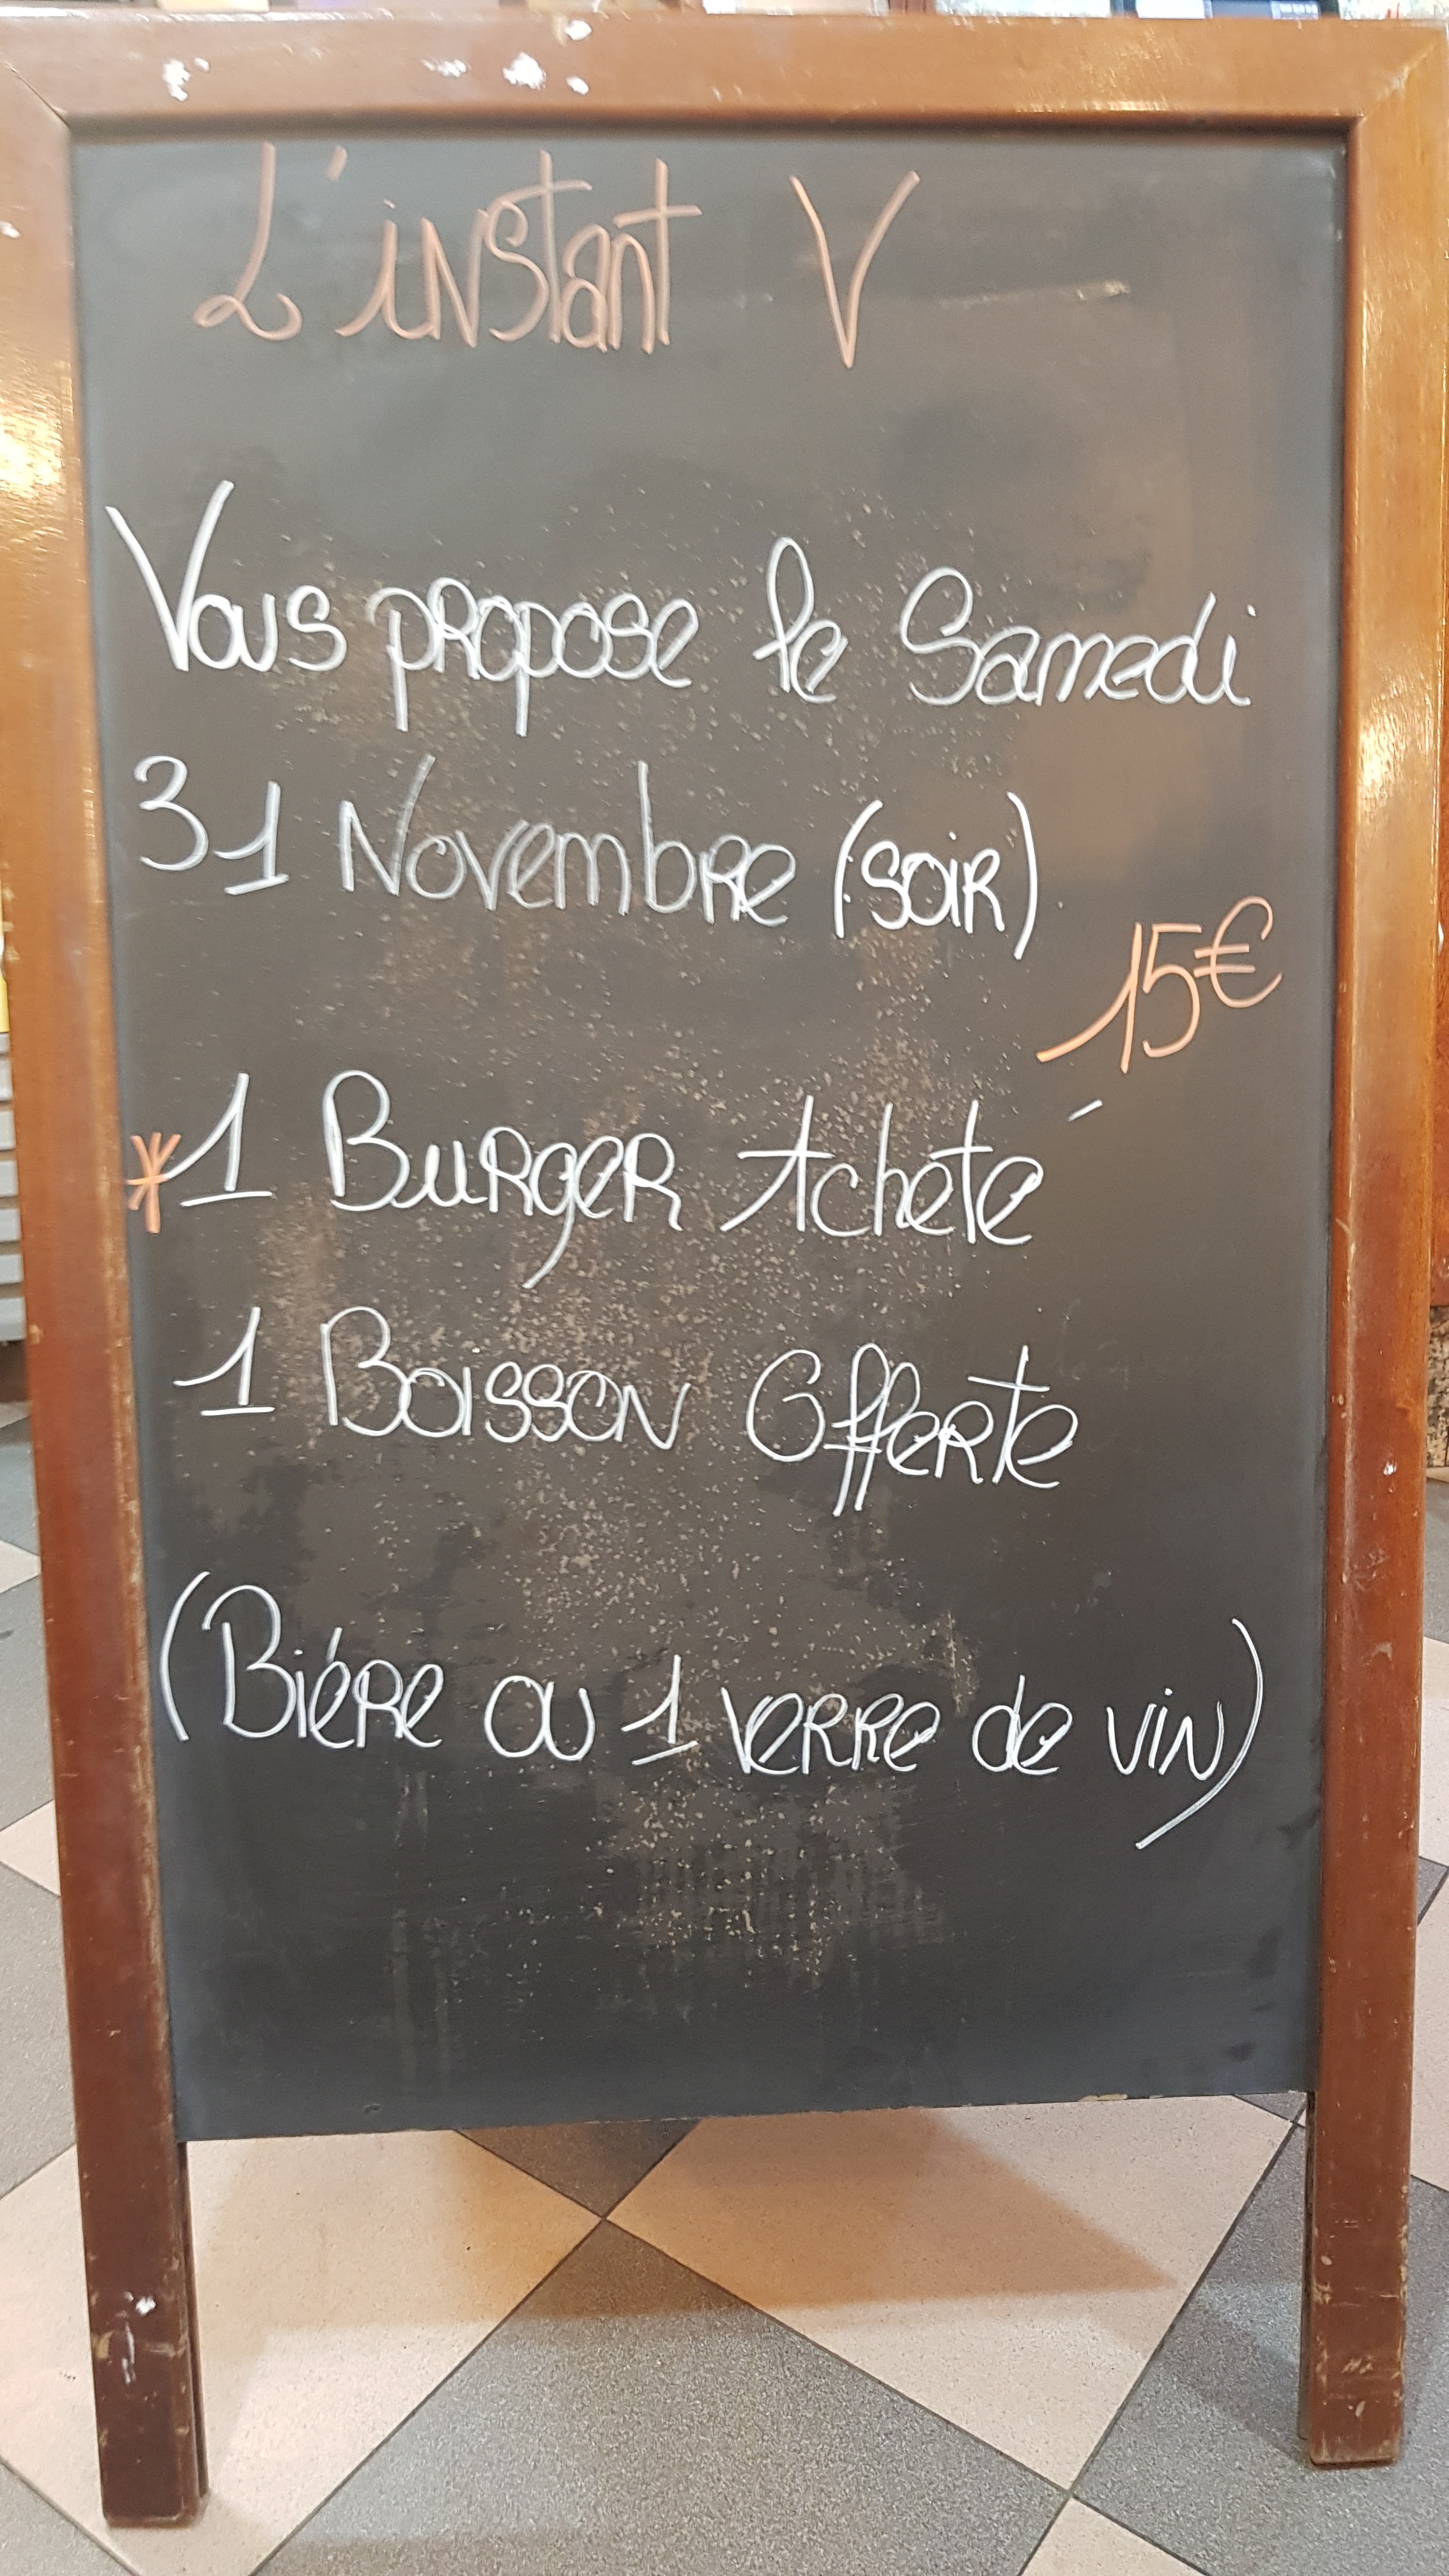 L'instant V
Vous propose le Samedi
31 Novembre (soir)
15€
*1 Burger Acheté
1 Boisson Offerte
(Biére ou 1 verre de vin)